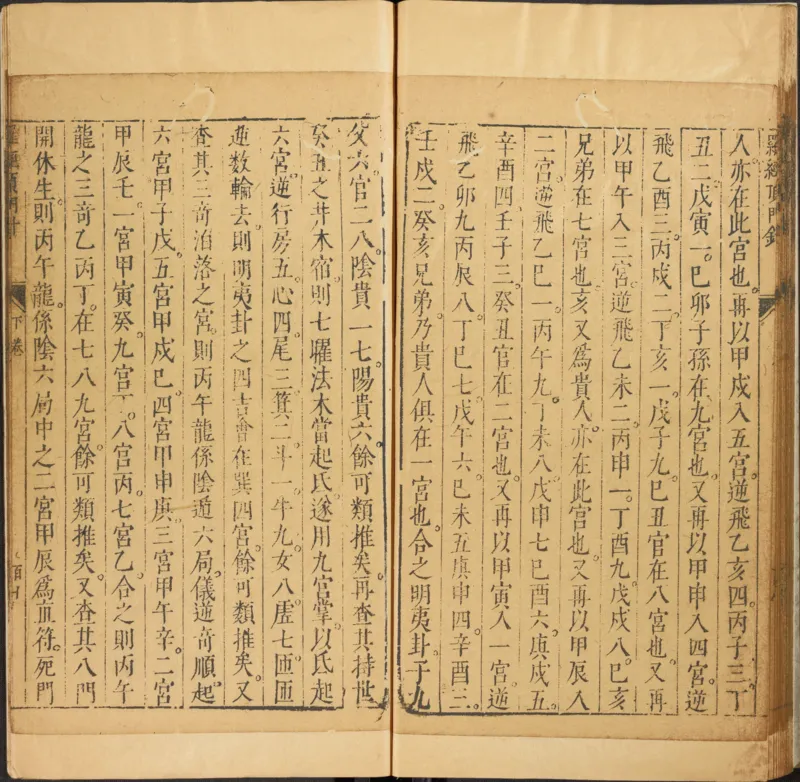 羅經頂門針
人亦在此宮也。再以甲戌入五宮。逆飛乙亥四。丙子三。丁
丑二。戊寅一。巳卯子孫在九宮也。又再以甲申入四宮。逆
飛乙酉三。丙戌二。丁亥一。戊子九。巳丑官在八宮也。又再
以甲午入三宮。逆飛乙未二。丙申一。丁酉九。戊戌八。巳亥
兄弟在七宮也。亥又為貴人。亦在此宮也。又再以甲辰入
二宮。逆飛乙巳一。丙午九。丁未八。戊申七。巳酉六。庚戌五。
辛酉四。壬子三。癸丑官在二宮也。又再以甲寅入一宮。逆
飛乙卯九。丙辰八。丁巳七。戊午六。巳未五。庚申四。辛酉三。
壬戌二。癸亥兄弟。乃貴人俱在一宮也。合之明夷卦。子九
父六官二八陰貴一七陽貴六。餘可類推矣。再查其持世
癸丑之井木宿。則七曜法木當起氐。遂用九宮掌。以氐起
六宮。逆行房五。心四。尾三。箕二。斗一。牛九。女八。虛七。匝匝
逆數輪去。則明夷卦之四吉會在巽四宮。餘可類推矣。又
查其三奇泊落之宮。則丙午龍係陰遁六局。儀逆奇順。起
六宮甲子戊。五宮甲戌巳。四宮甲申庚。三宮甲午辛。二宮
甲辰壬。一宮甲寅癸。九宮丁。八宮丙。七宮乙。合之則丙午
龍之三奇乙丙丁。在七八九宮。餘可類推矣。又查其八門
開休生。則丙午龍。係陰六局中之二宮甲辰為直符。死門
下卷